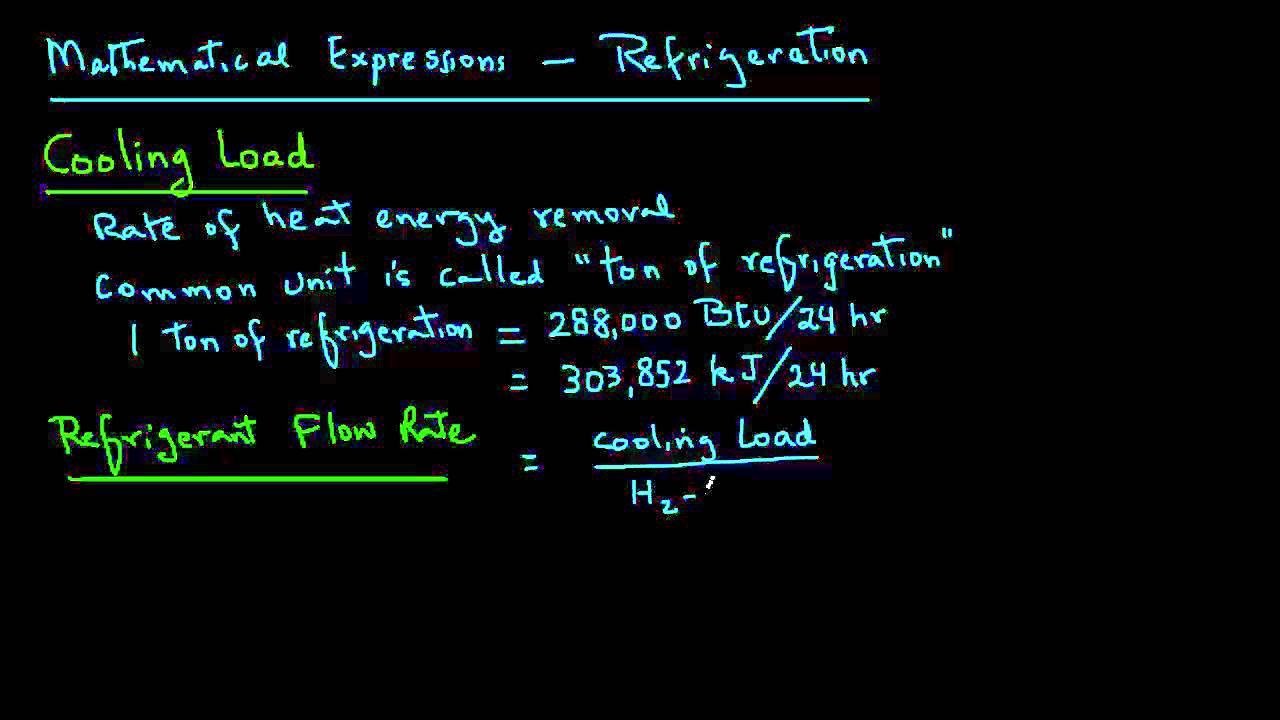 Mathematical Expressions - Refrigeration
Cooling Load
Rate of heat energy removal
Common unit is called "ton of refrigeration"
1 ton of refrigeration = 288,000 Btu/24 hr
= 303,852 kJ/24 hr
Refrigerant Flow Rate = cooling Load
H₂ -